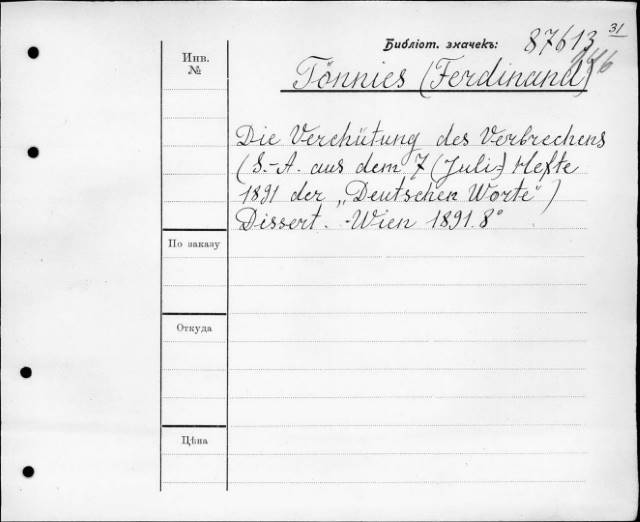 31
Библіот. значекъ: 87613
Инв.
№
Tönnies (Ferdinand)
Die Verhütung des Verbrechens
(S.-A. aus dem 7 (Juli-) Hefte
1891 der „Deutschen Worte")
Dissert. - Wien 1891. 8°
По заказу
Откуда
Цѣна